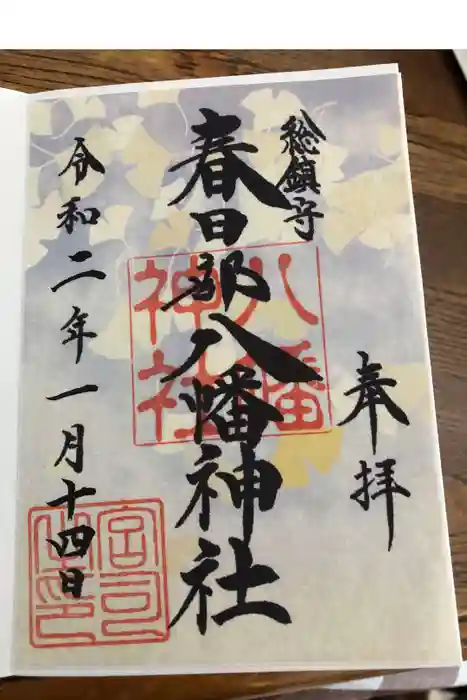 奉拝
総鎮守
春日部八幡神社
八幡
神社
令和二年一月十四日
宮司
之印